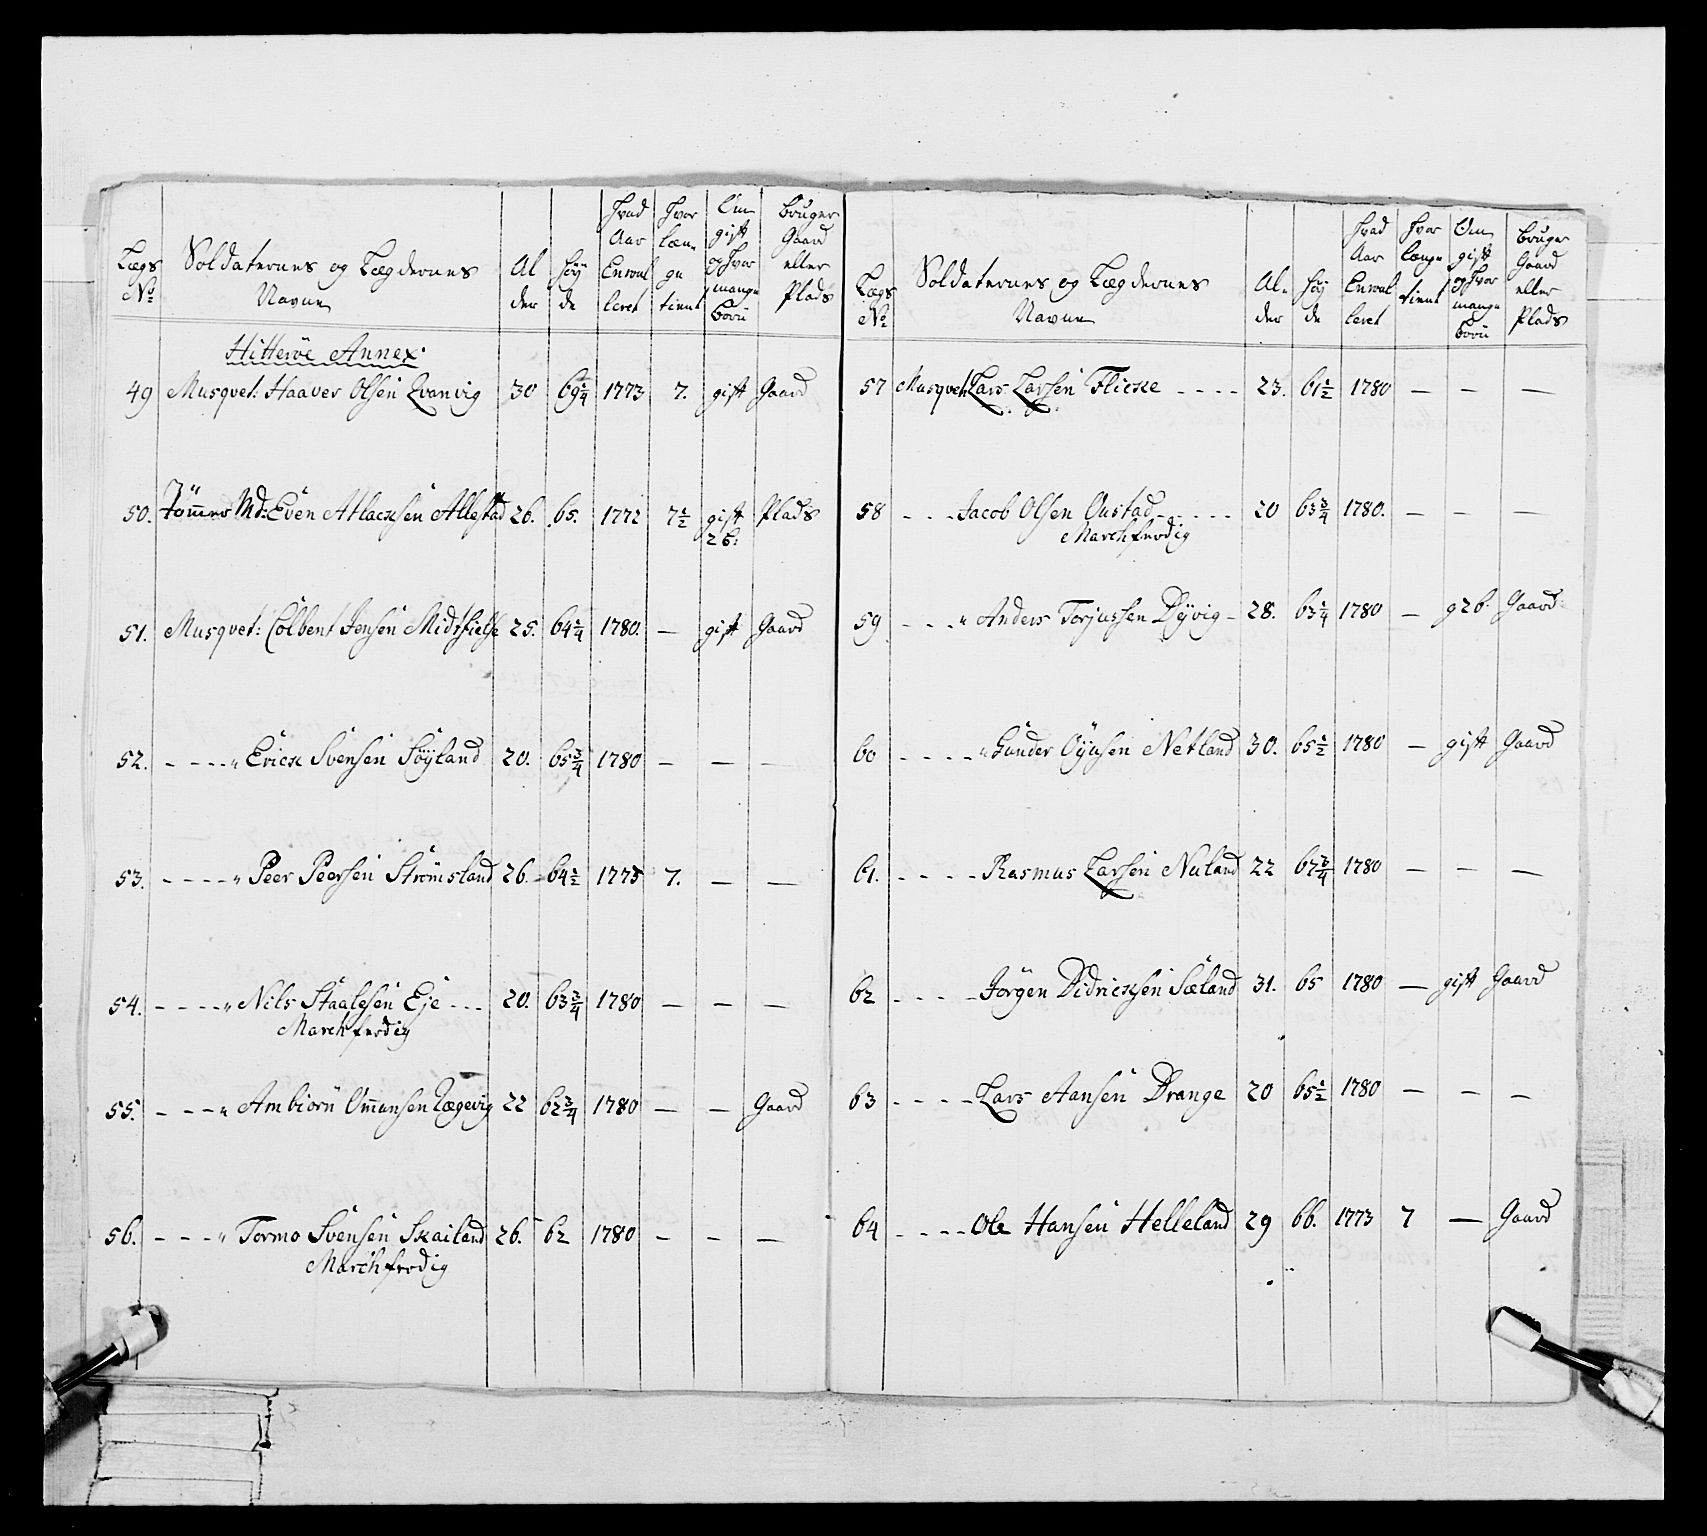 Lægs No Soldaternes og Lægdernes Navne Al der Høy de Hvad Aar Enroul leret Hvor læn ge tient Om gift og Hvor mange Børn Bruger Gaard eller Plads
Hitterøe Annex
49 Musqvet: Haaver Olsen Qvanvig 30 69 1/4 1773 7. gift Gaard
50. Tømmer Md: Even Atlacksen Allestad 26. 65. 1772 7 1/2 gift 2 b: Plads
51. Musqvet: Colbent Jensen Midtfielse 25. 64 1/4 1780. — gift Gaard
52. - - - - „ Erick Svensen Søyland 20. 65 3/4 1780 — — —
53. - - - - - „ Peer Peersen Strømsland 26. 64 1/2 1773 7. — —
54. - - - - - „ Nils Staalesen Eje - - - 20. 63 3/4 1780 — — —
Marchferdig
55. - - - - „ Ambiørn Omunsen Rægevig 22 62 3/4 1780 — — Gaard
56. - - - - „ Tormo Svensen Skailand 26. 62 1780 — — —
Marchferdig
Lægs No Soldaternes og Lægdernes Navne Al- der Høy de Hvad Aar Enroul leret Hvor længe tient Om gift og Hvor mange Børn Bruger Gaard eller Plads
57 Musqvet: Lars Larsen Flicke - - - - 23. 61 1/2 1780 — — —
58 - - - Jacob Olsen Oustad - - - - - 20 63 3/4 1780. — — —
Marchferdig
59 - - - - „ Anders Torjussen Dyvig - 28. 63 1/4 1780 — g 2 b. Gaard
60 - - - - - „ Gunder Oynsen Netland 30. 65 1/2 1780 — gift Gaard
61. - - - - - Rasmus Larsen Nuland 22 67 3/4 1780 — — —
62 - - - - - Jørgen Didricksen Sæland 31. 65 1780 — gift Gaard
63 - - - - - Lars Aansen Drange 20 65 1/2 1780 — — —
64 - - - - Ole Hansen Helleland 29 66. 1773 7 — Gaard